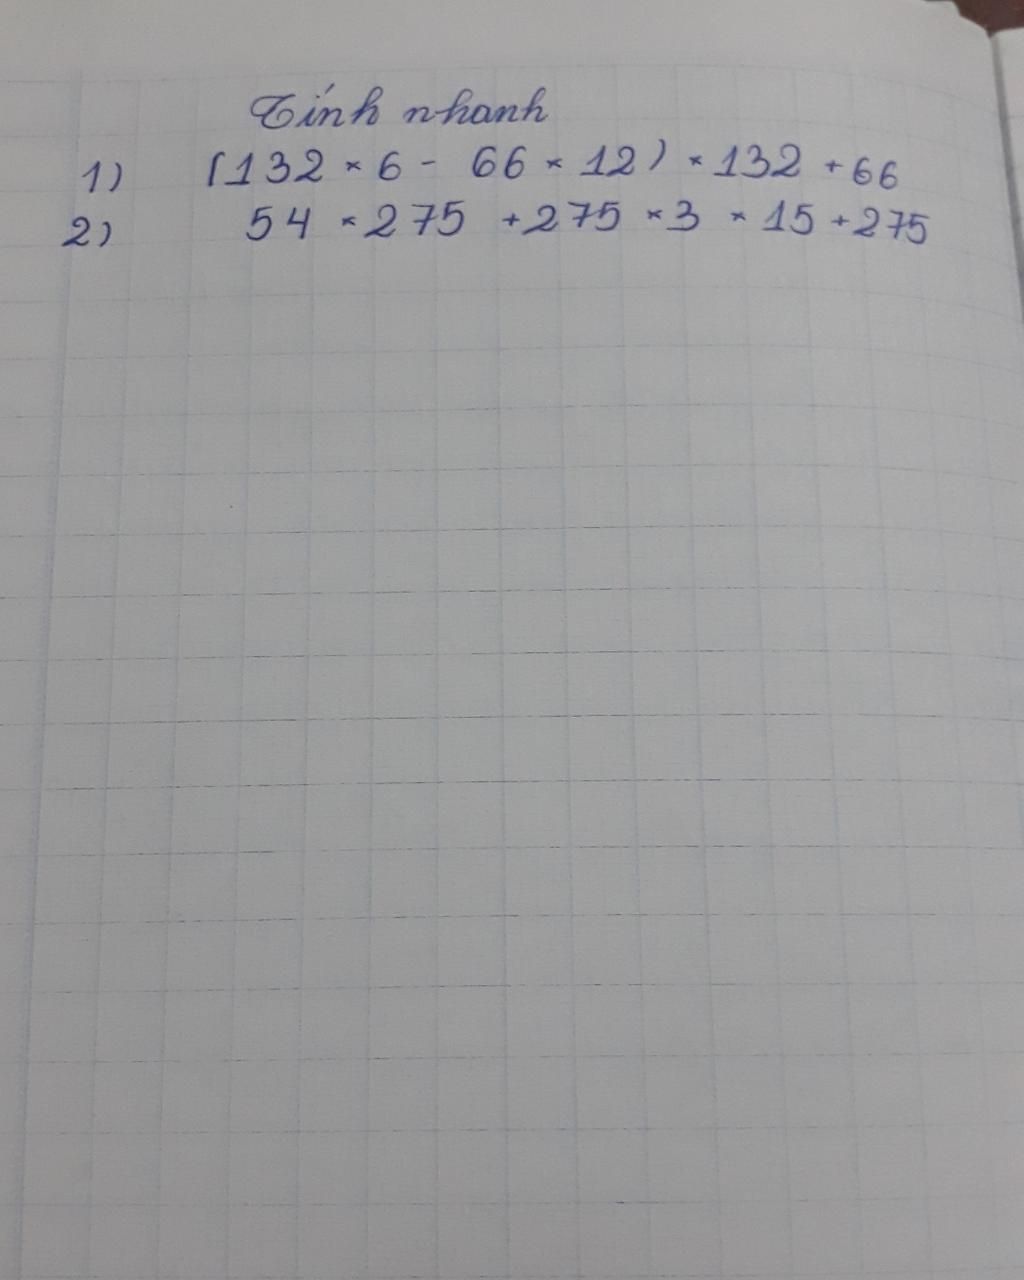 Tính nhanh
1) (132 × 6 - 66 × 12) × 132 + 66
2) 54 × 275 + 275 × 3 × 15 + 275